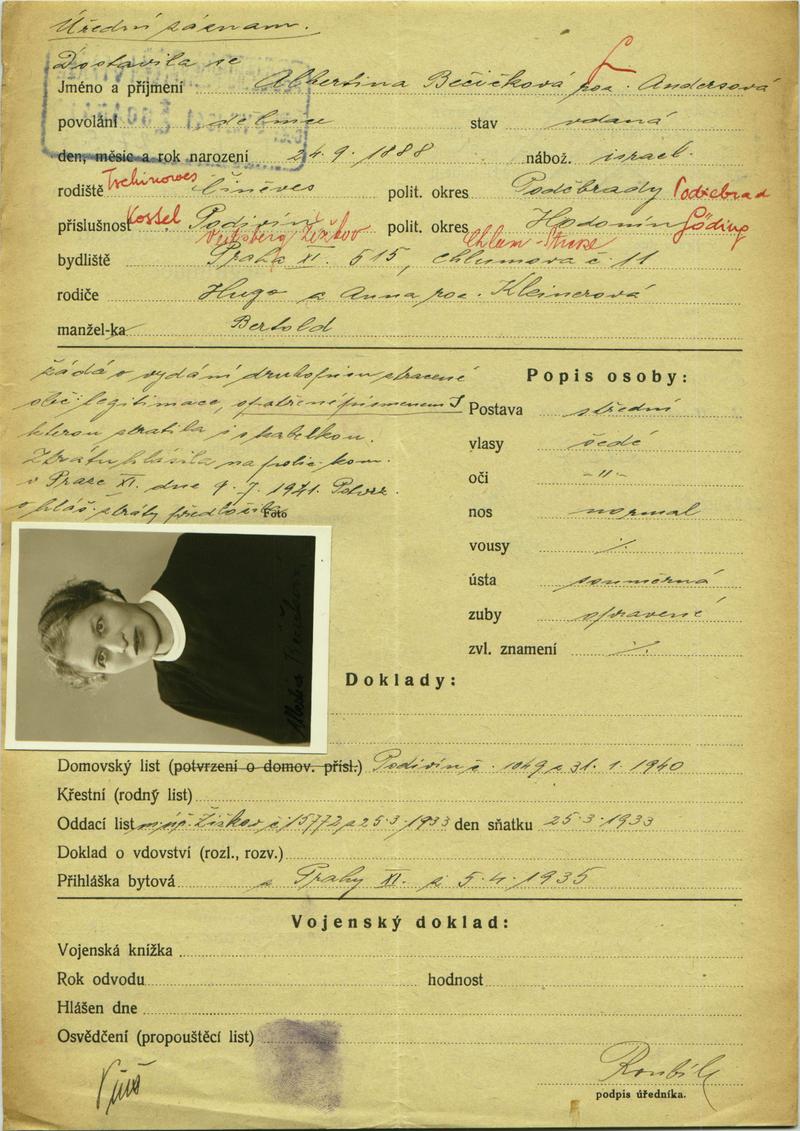 Úřední záznam.
Dostavila se
Jméno a příjmení Albertina Bečičková roz. Andersová
povolání dělnice stav vdaná
den, měsíc a rok narození 24.9.1888 nábož. israel.
rodiště Tschinowes Činěves polit. okres Poděbrady Podiebrad
příslušnost Kostel Podivín polit. okres Hodonín Göding
Veitsberg Žižkov Chlum-
bydliště Praha XI. 515, Chlumova č 11
rodiče Hugo a Anna roz. Kleinerová
manžel-ka Bertold
žádá o vydání druhopisu ztracené
obč. legitimace, opatřené písmenem J
kterou ztratila i s kabelkou.
Ztrátu hlásila na polic. kom.
v Praze XI. dne 9.7.1941. Potvrz.
o hláš. ztráty předložila
Foto
Popis osoby:
Postava střední
vlasy šedé
oči -"-
nos normal
vousy ·/.
ústa souměrná
zuby spravené
zvl. znamení ·/.
Doklady:
Domovský list (potvrzení o domov. přísl.) Podivín č. 1049 z 31.1.1940
Křestní (rodný list)
Oddací list Žižkov č 15772 z 25.3.1933 den sňatku 25.3.1933
Doklad o vdovství (rozl., rozv.)
Přihláška bytová z Prahy XI. z 5.4.1935
Vojenský doklad:
Vojenská knížka
Rok odvodu hodnost
Hlášen dne
Osvědčení (propouštěcí list)
podpis úředníka.